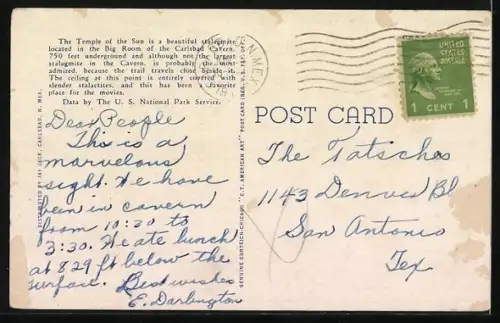 The Temple of the Sun is a beautiful stalagmite
located in the Big Room of the Carlsbad Cavern,
750 feet underground and although not the largest
stalagmite in the Cavern, is probably the most
admired, because the trail travels close beside it.
The ceiling at this point is entirely covered with
slender stalactites, and this has been a favorite
place for the movies.
Data by The U. S. National Park Service.
Dear People
This is a
marvelous
sight. We have
been in cavern
from 10:30 to
3:30. We ate lunch
at 829 ft below the
surface. Best wishes
E. Darlington
DISTRIBUTED BY JAY DECK, CARLSBAD, N. MEX.
GENUINE CURTEICH-CHICAGO "C.T. AMERICAN ART" POST CARD (REG. U.S. PAT. OFF.)
N. MEX.
UNITED
STATES
POSTAGE
1 CENT 1
POST CARD
The Tatsches
1143 Denver Bl
San Antonio
Tex